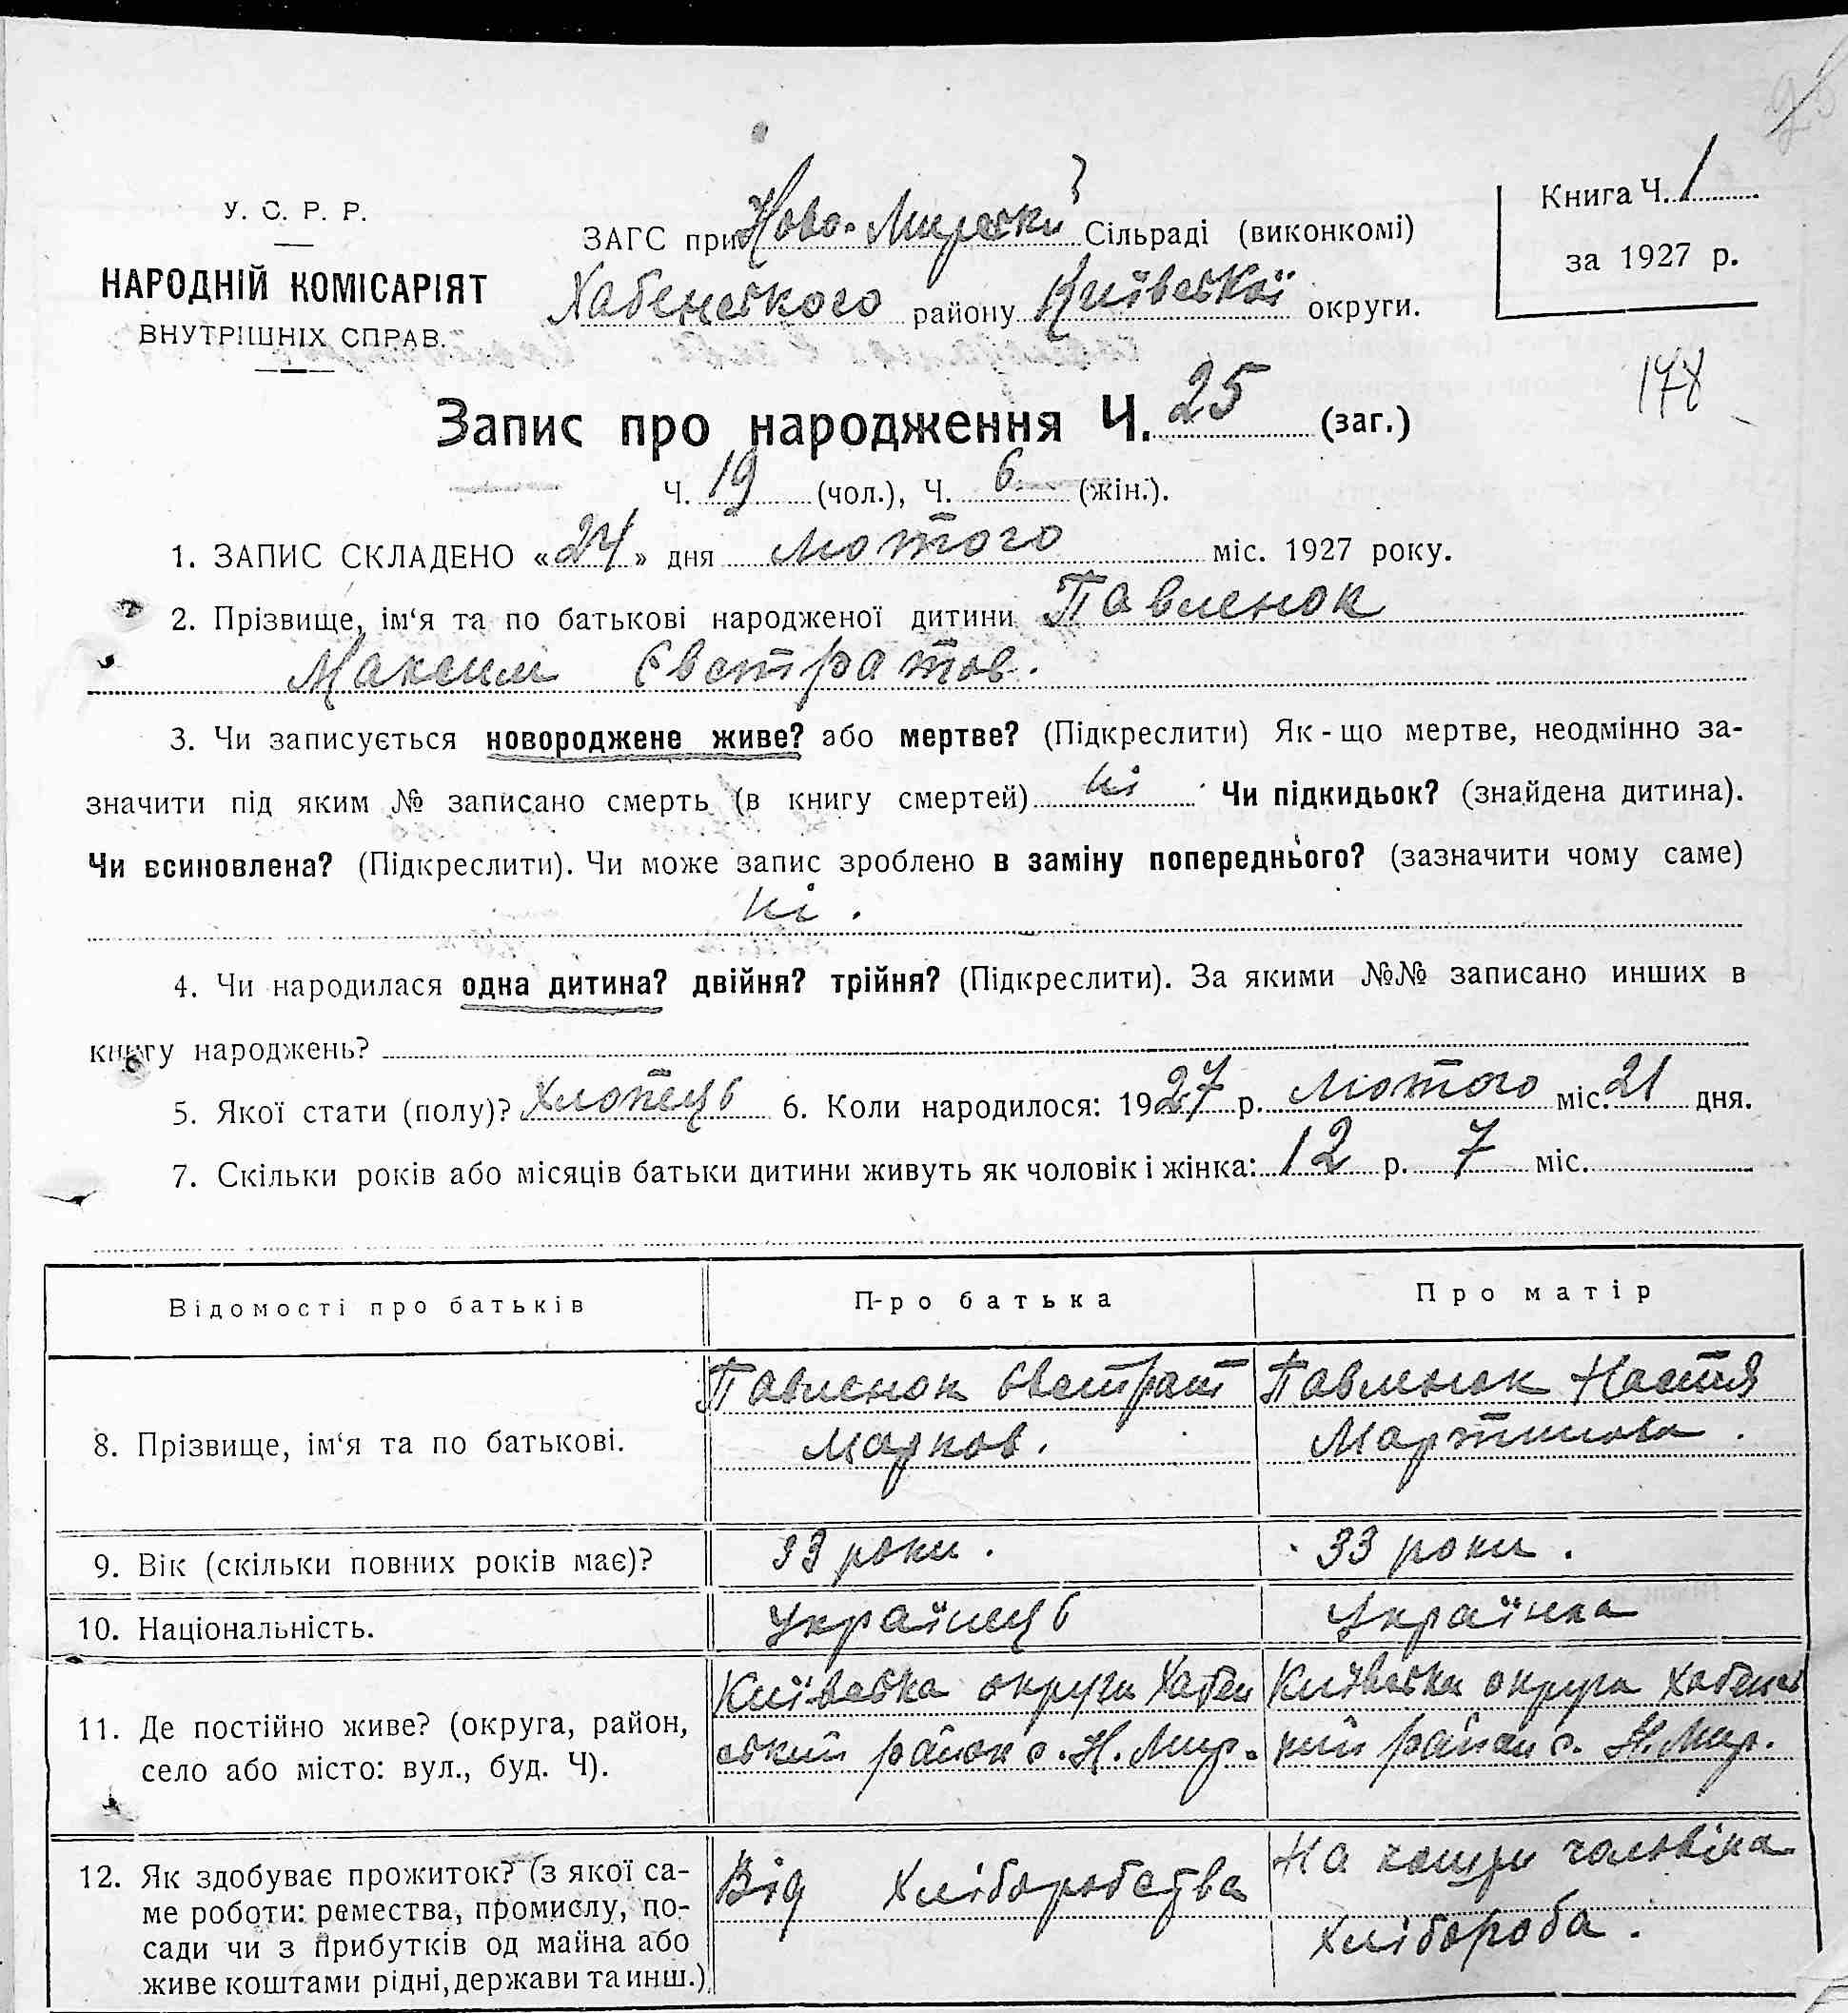 У. С. Р. Р.
НАРОДНІЙ КОМІСАРІЯТ
ВНУТРІШНІХ СПРАВ.
ЗАГС при Ново-Мирській Сільраді (виконкомі)
Хабенського району Київської округи.
Книга Ч. 1
за 1927 р.
178
Запис про народження Ч. 25 (заг.)
Ч. 19 (чол.), Ч. 6 (жін.).
1. ЗАПИС СКЛАДЕНО «24» дня лютого міс. 1927 року.
2. Прізвище, ім‘я та по батькові народженої дитини Павленок
Максим Євстратов.
3. Чи записується новороджене живе? або мертве? (Підкреслити) Як-що мертве, неодмінно за-
значити під яким № записано смерть (в книгу смертей) ні Чи підкидьок? (знайдена дитина).
Чи всиновлена? (Підкреслити). Чи може запис зроблено в заміну попереднього? (зазначити чому саме)
ні.
4. Чи народилася одна дитина? двійня? трійня? (Підкреслити). За якими №№ записано инших в
книгу народжень?
5. Якої стати (полу)? Хлопець 6. Коли народилося: 1927 р. лютого міс. 21 дня.
7. Скільки років або місяців батьки дитини живуть як чоловік і жінка: 12 р. 7 міс.
Відомості про батьків Про батька Про матір
8. Прізвище, ім‘я та по батькові.
Павленок Євстрат
Марков.
Павленок Настя
Мартинова.
9. Вік (скільки повних років має)? 33 роки. 33 роки.
10. Національність. Українець Українка
11. Де постійно живе? (округа, район,
село або місто: вул., буд. Ч).
Київська округа Хабен
ський район с. Н. Мир.
Київська округа Хабенсь
кий район с. Н. Мир.
12. Як здобуває прожиток? (з якої са-
ме роботи: ремества, промислу, по-
сади чи з прибутків од майна або
живе коштами рідні, держави та инш.)
Від хліборобства
На кошти чоловіка
хлібороба.